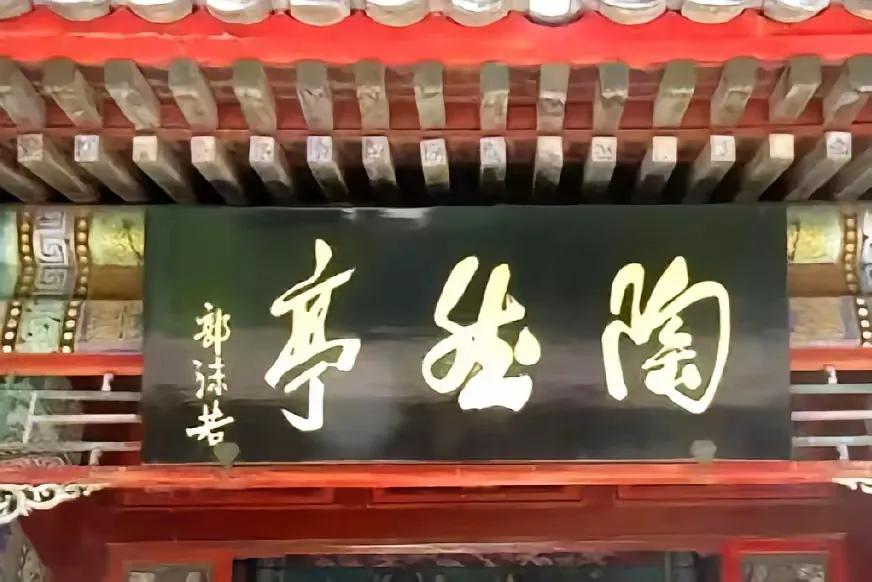 陶然亭
郭沫若